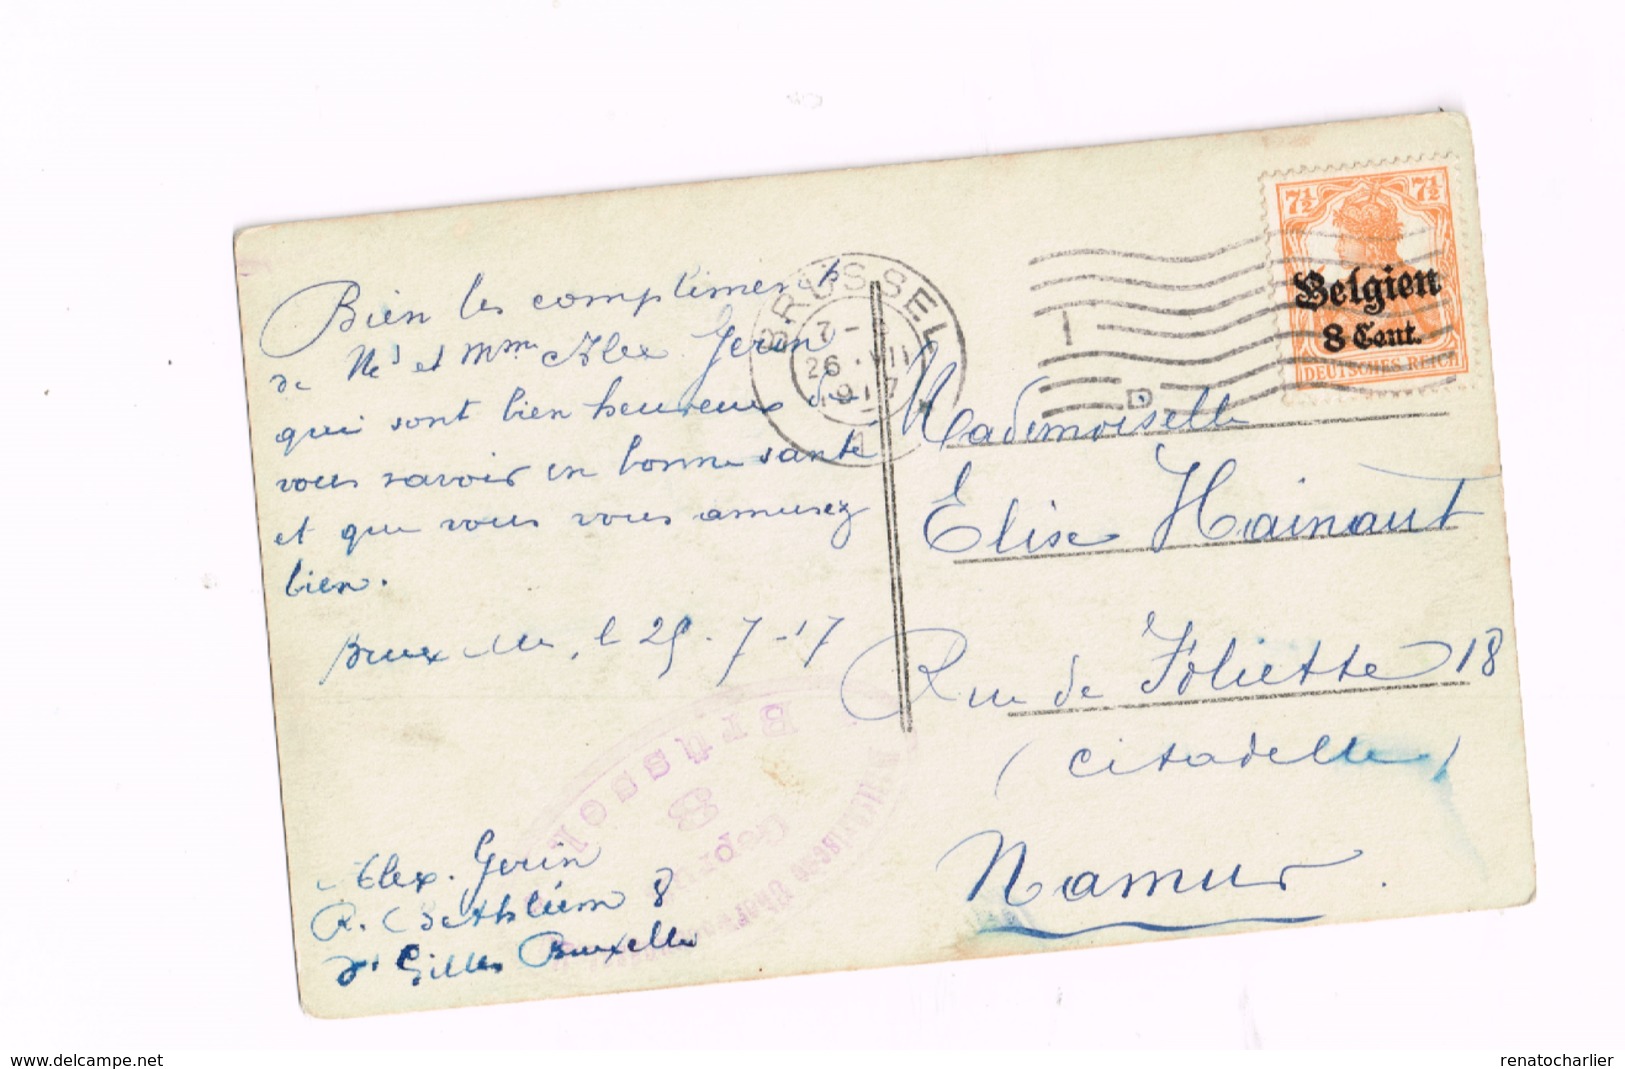 Bien les compliments
de Mr et Mme Alex Gerin
qui sont bien heureux de
vous savoir en bonne santé
et que vous vous amusez
bien.
Bruxelles, le 25-7-17
Alex. Gerin
R. Bethléem 8
St Gilles Bruxelles
BRÜSSEL
7-8
26.VII
1917
1
7½ 7½
Belgien
8 Cent.
DEUTSCHES REICH
Mademoiselle
Elise Hainaut
Rue de Joliette 18
(Citadelle)
Namur.
Brüssel
8
Gepr
www.delcampe.net
renatocharlier